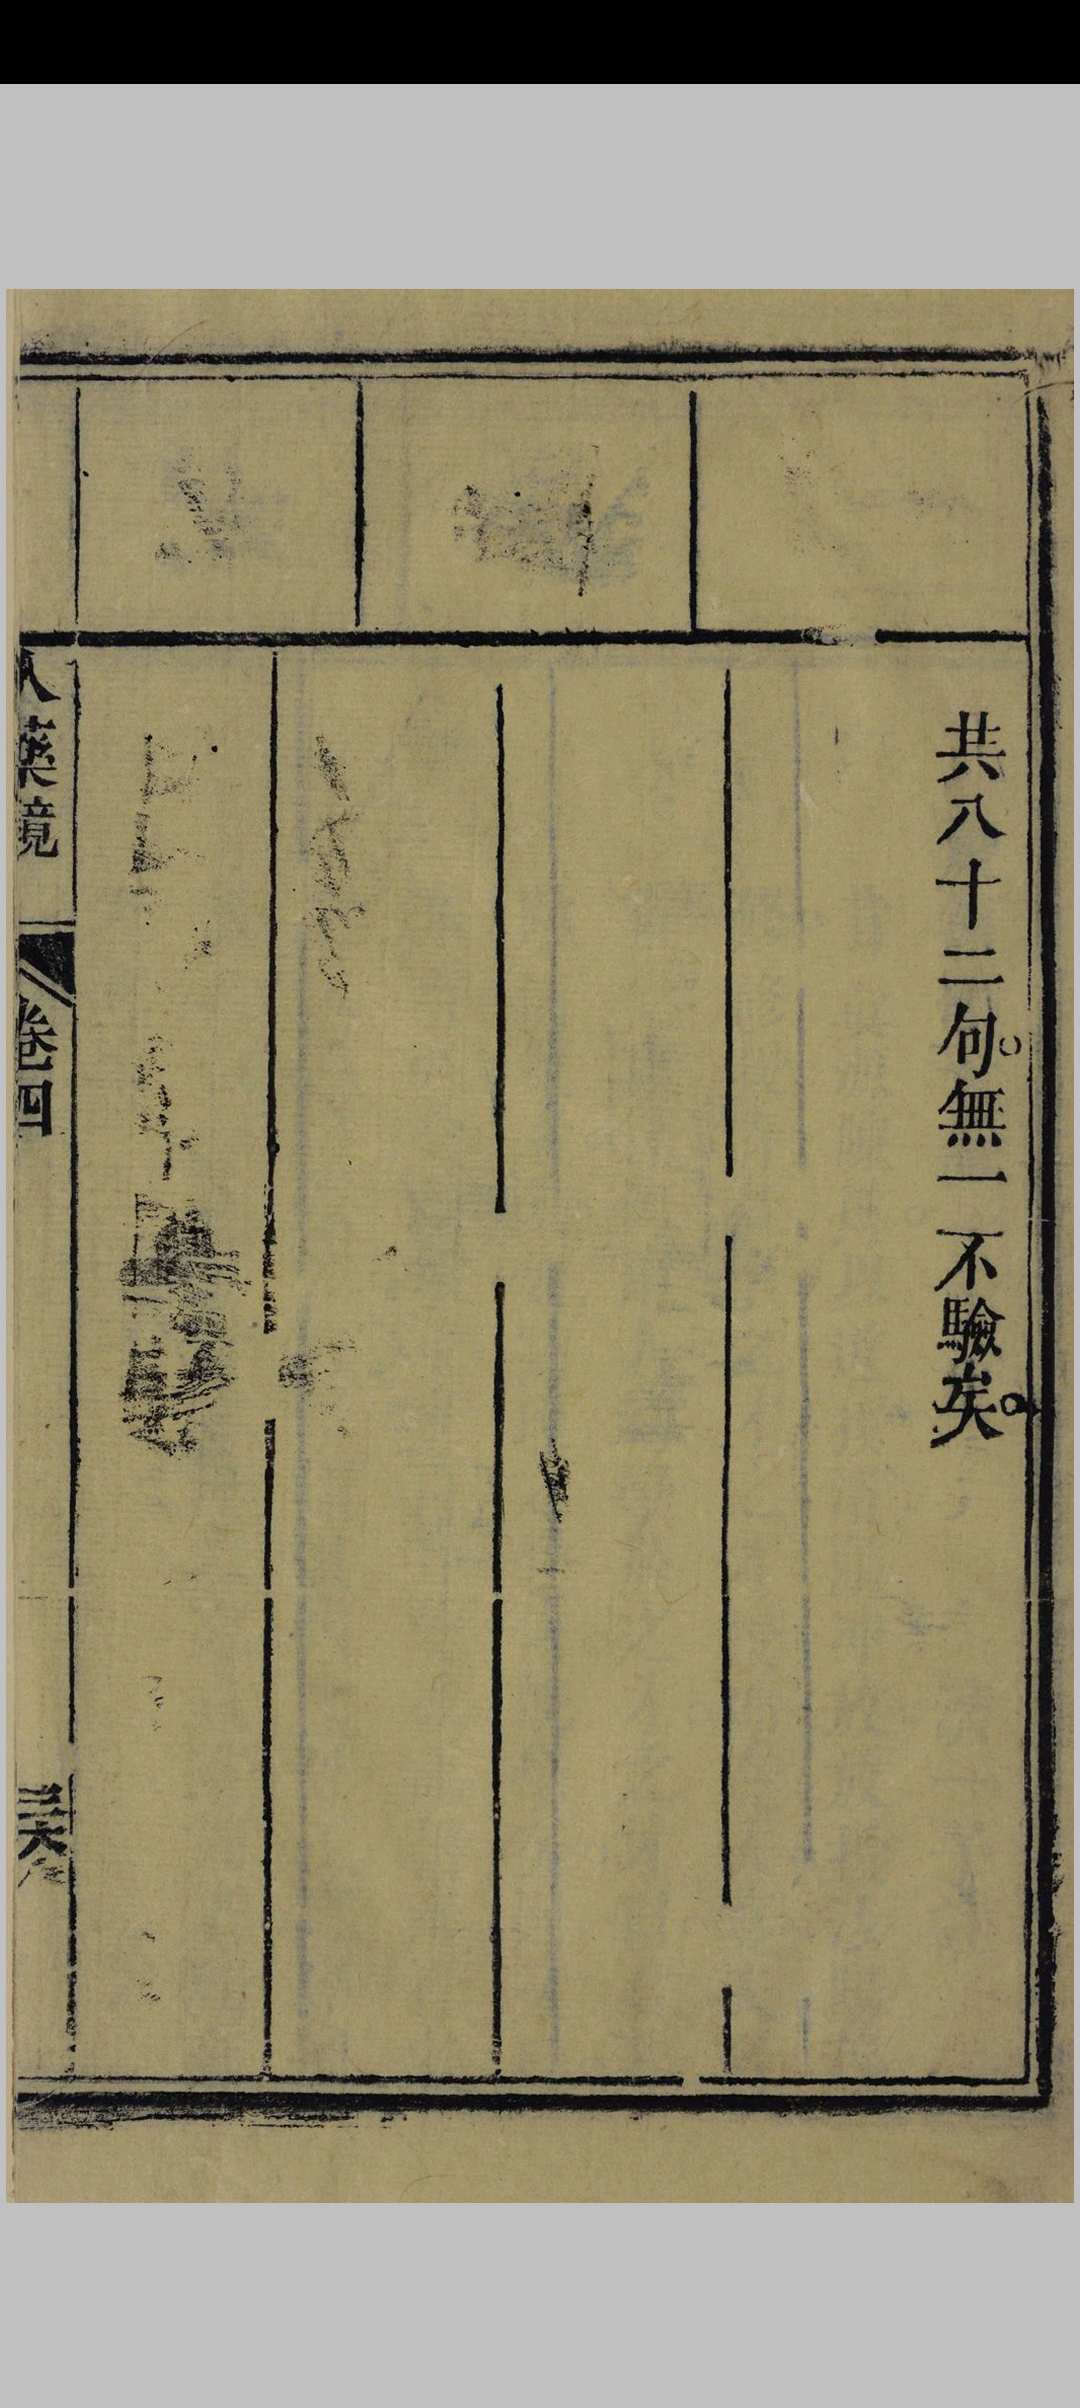 共八十二句。無一不驗矣。
藥鏡
卷四